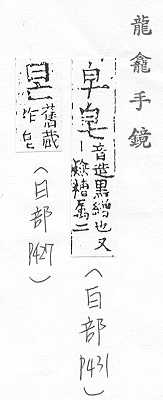 龍龕手鏡
皁皂音造黑繒也又
二
(白部P431)
舊藏
作皂
(日部P427)